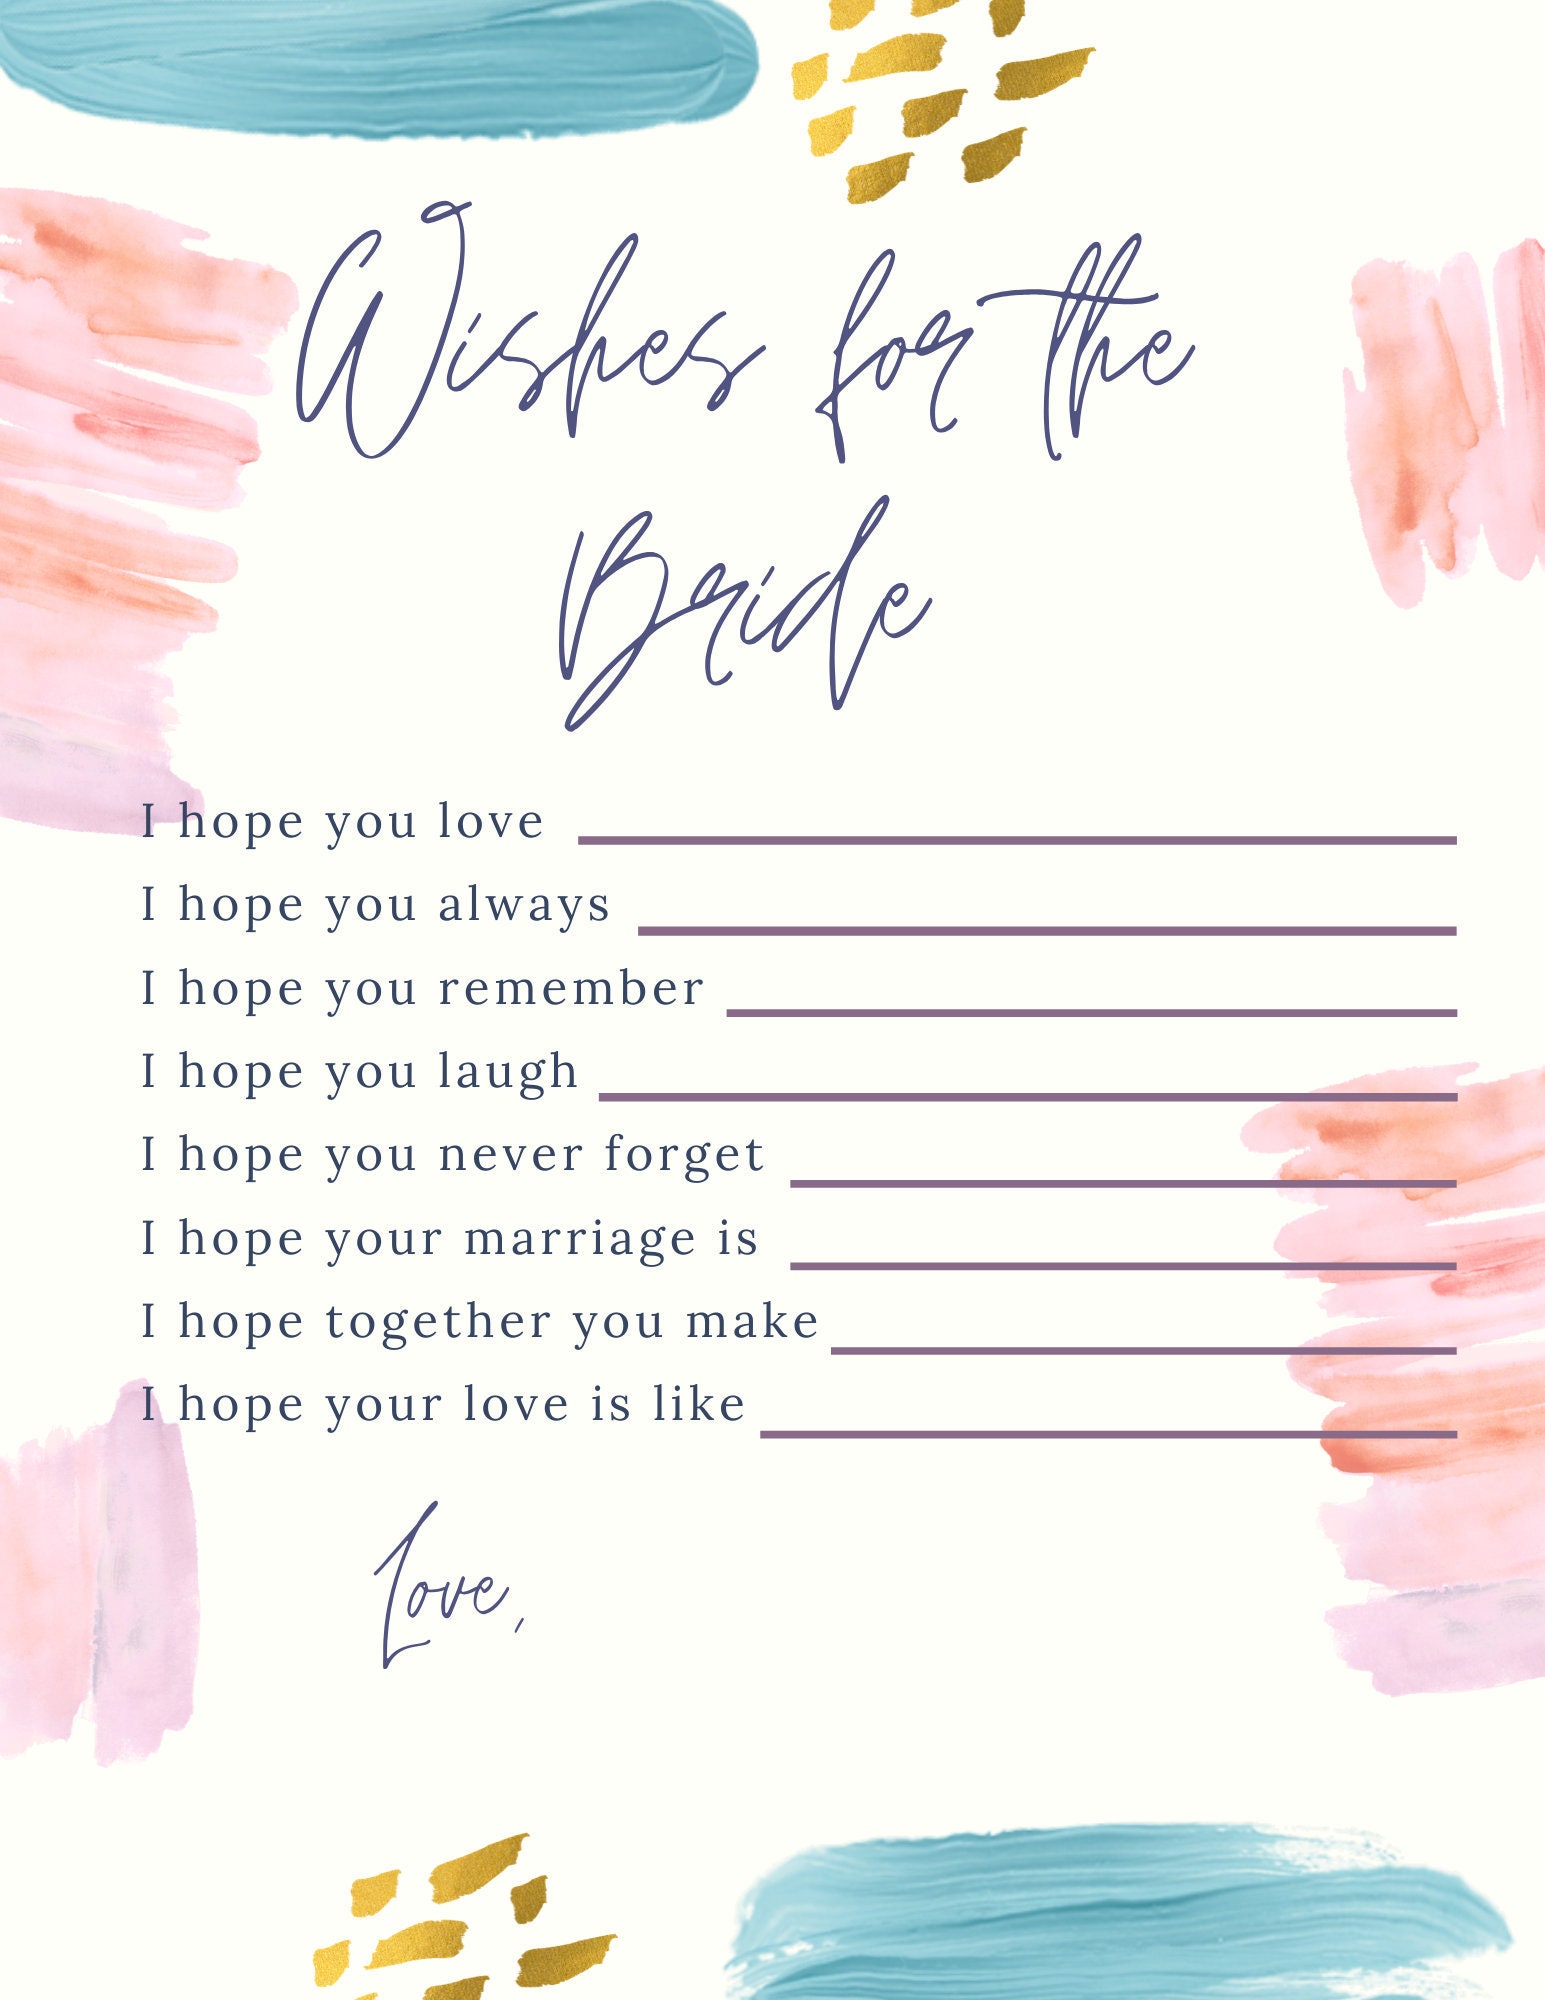 Wishes for the
Bride
I hope you love
I hope you always
I hope you remember
I hope you laugh
I hope you never forget
I hope your marriage is
I hope together you make
I hope your love is like
Love,